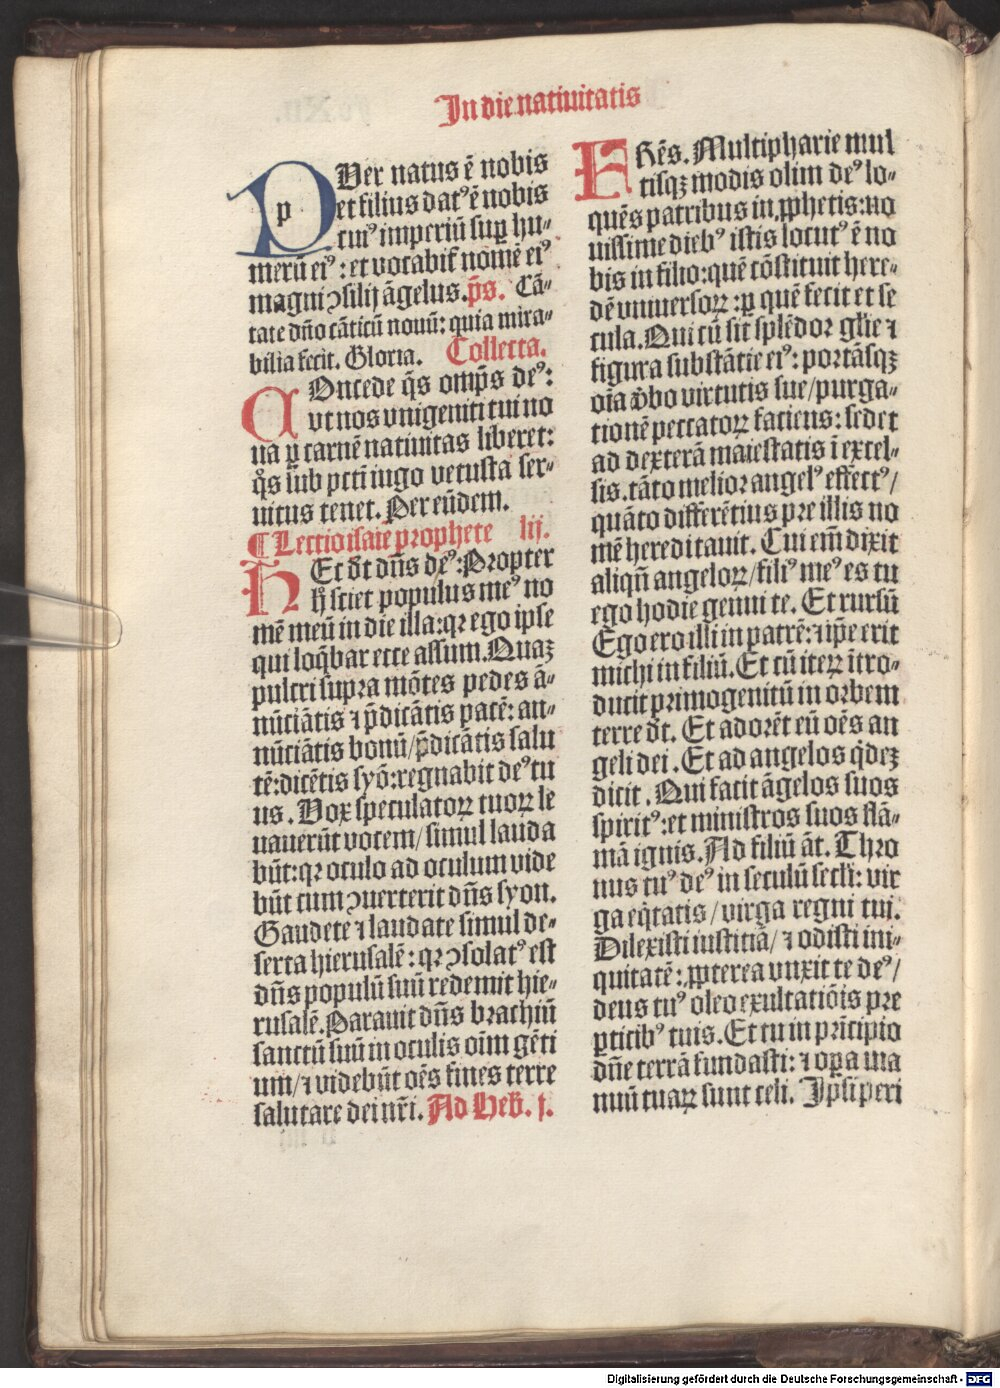 In die natiuitatis
PVer natus ē nobis
p et filius datꝰ ē nobis
cuiꝰ imperiū suꝑ hu⸗
merū eiꝰ: et vocabit̄ nomē eiꝰ
magni ↄsilij āgelus. p̄s. Cā⸗
tate dn̄o cāticū nouū: quia mira⸗
bilia fecit. Gloria. Collecta.
COncede q̄s omp̄s deꝰ:
vt nos vnigeniti tui no
ua ꝑ carnē natiuitas liberet:
q̊s sub pctī iugo vetusta ser⸗
uitus tenet. Per eūdem.
¶ Lectio isaie prophete lij.
HEt dt̄ dn̄s deꝰ: Propter
h̄ sciet populus meꝰ no
mē meū in die illa: qꝛ ego ipse
qui loq̄bar ecce assum. Quaꝫ
pulcri supra mōtes pedes ā⸗
nūciātis ⁊ p̄dicātis pacē: an⸗
nūciātis bonū/ p̄dicātis salu
tē: dicētis syō: regnabit deꝰ tu
us. Vox speculatoꝝ tuoꝝ le
uauerūt vocem/ simul lauda
būt: qꝛ oculo ad oculum vide
būt cum ↄuerterit dn̄s syon.
Gaudete ⁊ laudate simul de⸗
serta hierusalē: qꝛ ↄsolatꝰ est
dn̄s populū suū redemit hie⸗
rusalē. Parauit dn̄s brachiū
sanctū suū in oculis oīm gēti
um/ ⁊ videbūt oēs fines terre
salutare dei nr̄i. Ad Heb̄. j.
FRēs. Multipharie mul
tisqꝫ modis olim deꝰ lo⸗
quēs patribus in ꝓphetis: no
uissime diebꝰ istis locutꝰ ē no
bis in filio: quē cōstituit here⸗
dē vniuersoꝝ: ꝑ quē fecit et se
cula. Qui cū sit splēdor glīe ⁊
figura substātie eiꝰ: portāsqꝫ
oīa v̄bo virtutis sue/ purga⸗
tionē peccatoꝝ faciens: sedet
ad dexterā maiestatis ī excel⸗
sis. tāto melior angelꝰ effectꝰ/
quāto differētius pre illis no
mē hereditauit. Cui em̄ dixit
aliqn̄ angeloꝝ/ filiꝰ meꝰ es tu
ego hodie genui te. Et rursū
Ego ero illi in patrē: ⁊ ip̄e erit
michi in filiū. Et cū iteꝝ ītro⸗
ducit primogenitū in orbem
terre dt̄. Et adorēt eū oēs an
geli dei. Et ad angelos q̄deꝫ
dicit. Qui facit āgelos suos
spiritꝰ: et ministros suos flā⸗
mā ignis. Ad filiū āt. Thro
nus tuꝰ deꝰ in seculū secli: vir
ga eq̄tatis/ virga regni tui.
Dilexisti iustitiā/ ⁊ odisti ini⸗
quitatē: ꝓpterea vnxit te deꝰ/
deus tuꝰ oleo exultatiōis pre
ꝑticibꝰ tuis. Et tu in prīcipio
dn̄e terrā fundasti: ⁊ oꝑa ma
nuū tuaꝝ sunt celi. Ip̄si peri
Digitalisierung gefördert durch die Deutsche Forschungsgemeinschaft - DFG